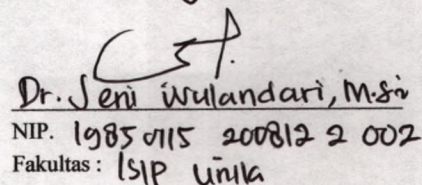 Dr. Jeni Wulandari, M.Si
NIP. 19850115 200812 2 002
Fakultas : ISIP Unila